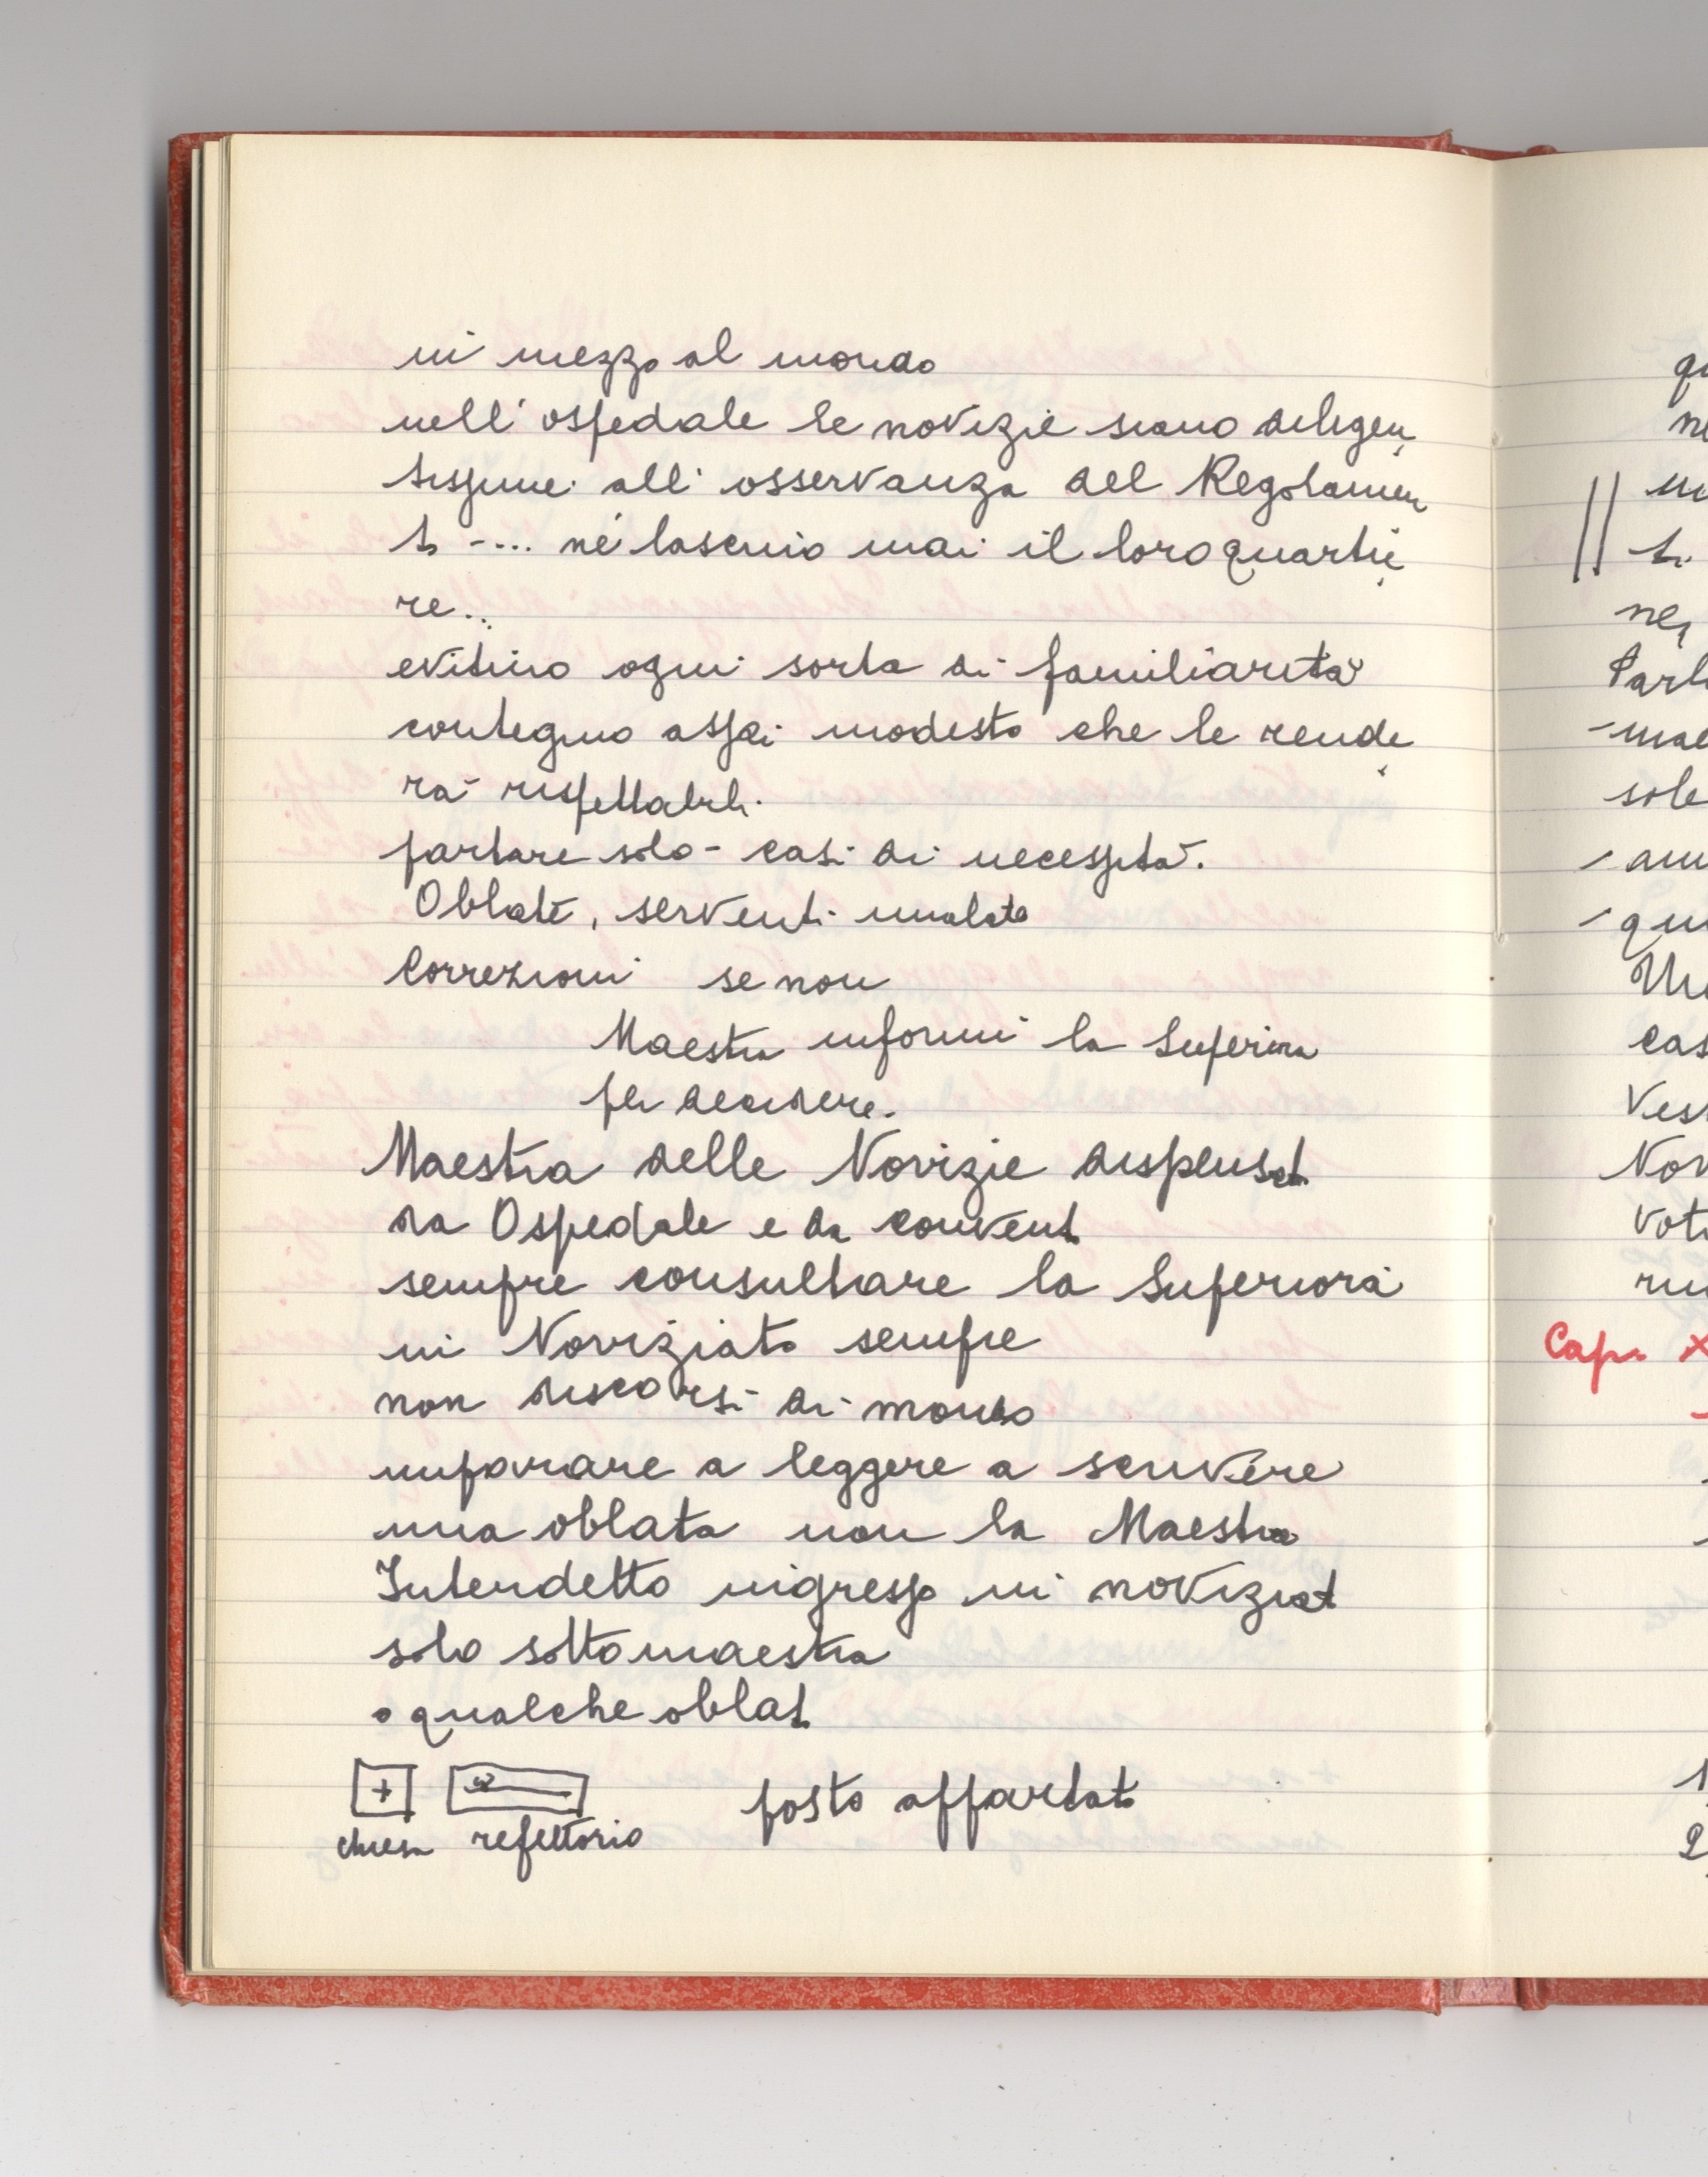 in mezzo al mondo
nell'ospedale le novizie siano diligen
tissime all'osservanza del Regolamen
to -... nè lascino mai il loro quartie
re...
evitino ogni sorta di familiarità
contegno assai modesto che le rende
rà rispettabili.
parlare solo - casi di necessità.
Oblate, serventi malate
Correzioni se non
Maestra informi la Superiora
per decidere.
Maestra delle Novizie dispensat
da Ospedale e da convent
sempre consultare la Superiora
in Noviziato sempre
non discorsi di mondo
imparare a leggere a scrivere
una oblata non la Maestra
Interdetto ingresso in noviziat
solo sottomaestra
o qualche oblat
chiesa refettorio posto appartato
qu
ne
in
ti
ne
Parl
- mae
sole
- am
- qu
cas
Vest
Nov
voti
Cap. X
1
2